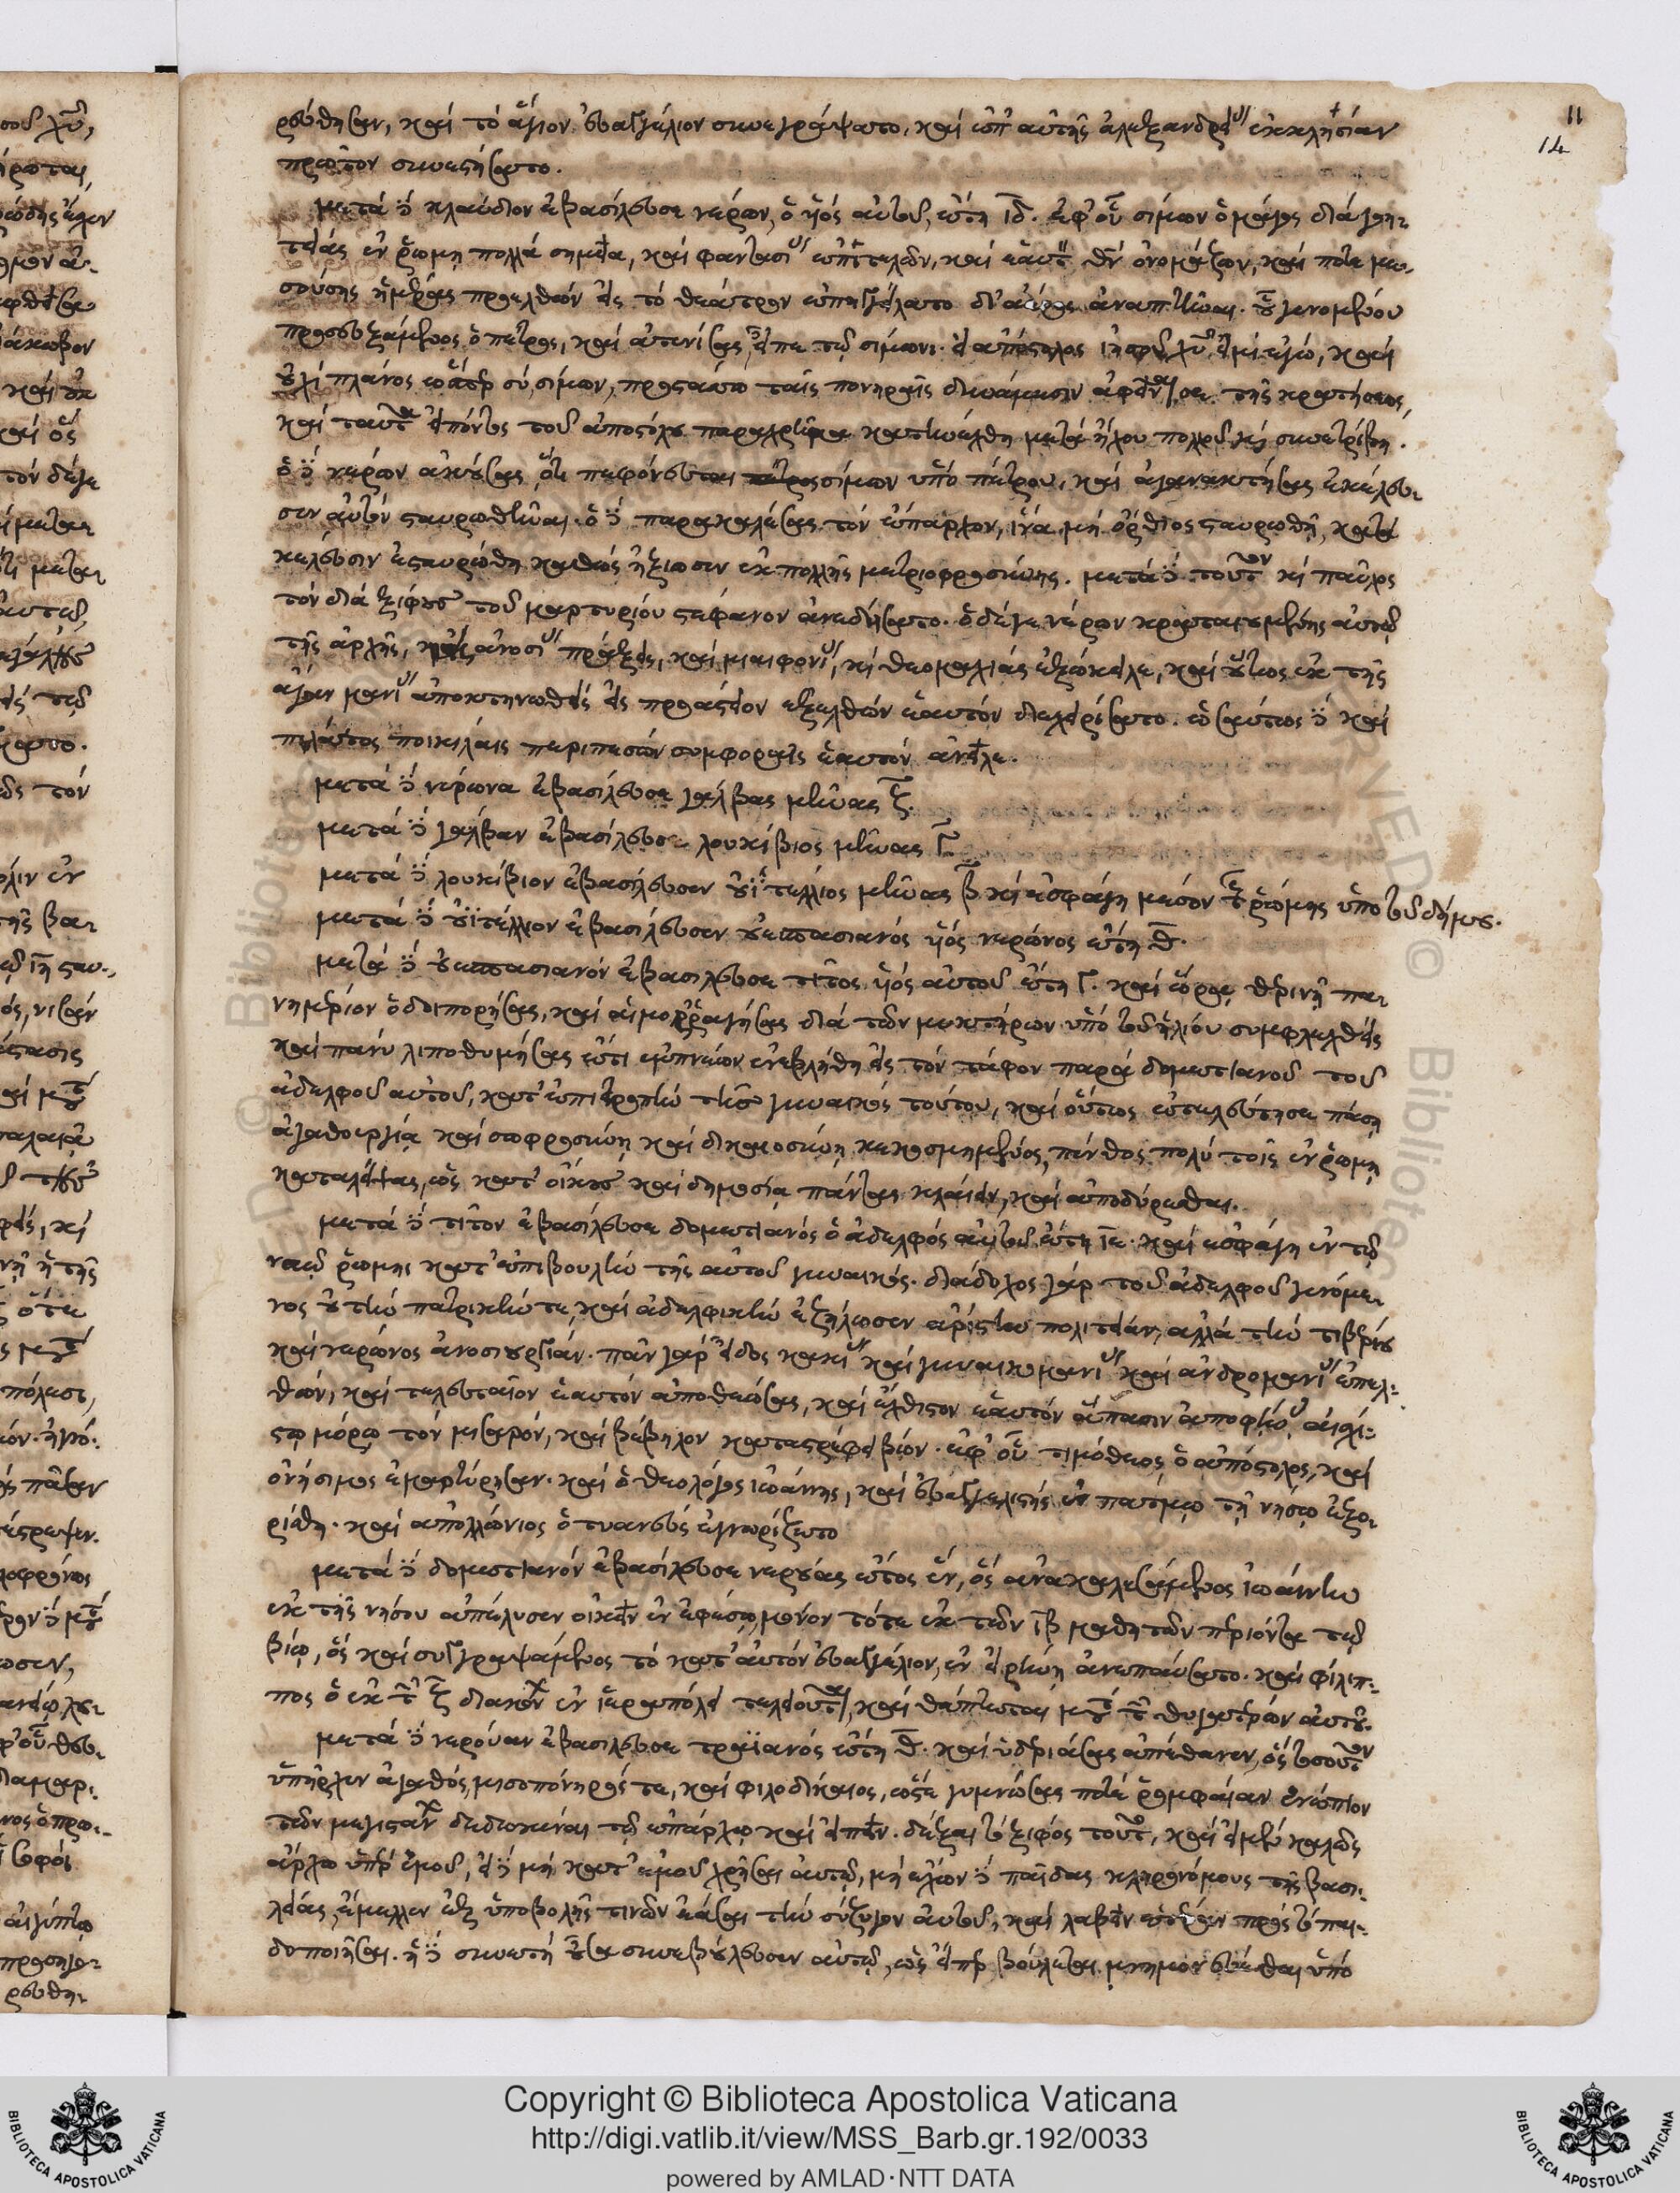 11
14
ρεύθησαν, καὶ τὸ ἅγιον εὐαγγέλιον συνεγράψατο, καὶ ἐπ' αὐτῆς ἀλεξανδρείας ἐκκλησίαν
πρῶτον συνεστήσατο.
μετὰ δὲ κλαύδιον ἐβασίλευσε νέρων, ὁ υἱὸς αὐτοῦ, ἔτη ιδ. ἐφ' οὗ σίμων ὁ μάγος διὰ γοη-
τείας ἐν ῥώμη πολλὰ σημεῖα, καὶ φαντασίας ἐπιτελῶν, καὶ ἑαυτὸν θν ὀνομάζων, καί ποτε με-
σούσης ἡμέρας προελθὼν εἰς τὸ θέατρον ἐπηγγείλατο δι' ἀέρος ἀναπτῆναι. οὗ γενομένου
προσευξάμενος ὁ πέτρος, καὶ ἀτενίσας, εἶπε τῷ σίμωνι. εἰ ἀπόστολος ἰησοῦ χυ εἰμὶ ἐγὼ, καὶ
οὐχὶ πλάνος ὥσπερ σύ, σίμων, προστάττω ταῖς πονηραῖς δυνάμεσιν ἀφεῖναί σε τῆς κρατήσεως,
καὶ ταῦτα εἰπόντος τοῦ ἀποστόλου παραχρῆμα κατηνέχθη μετὰ ἤχου πολλοῦ καὶ συνετρίβη.
ὁ δὲ νέρων ἀκούσας ὅτι πεφόνευται σίμων ὑπὸ πέτρου, καὶ ἀγανακτήσας ἐκέλευ-
σεν αὐτὸν σταυρωθῆναι. ὁ δὲ παρακαλέσας τὸν ἔπαρχον, ἵνα μὴ ὄρθιος σταυρωθῇ, κατὰ
κέλευσιν ἐσταυρώθη καθὼς ἠξίωσεν ἐκ πολλῆς μετριοφροσύνης. μετὰ δὲ τοῦτον καὶ παῦλος
τὸν διὰ ξίφους τοῦ μαρτυρίου στέφανον ἀνεδήσατο. ὁ δέ γε νέρων κραταιουμένης αὐτῷ
τῆς ἀρχῆς, ἀνοσίας πράξεις, καὶ μιαιφονίας, καὶ θεομαχίας ἐξώκειλε, καὶ οὕτως ἐκ τῆς
ἄγαν μανίας ἀποκτηνωθεὶς εἰς προάστειον ἐξελθὼν ἑαυτὸν διεχειρίσατο. ὡσαύτως δὲ καὶ
πιλάτος ποικίλαις περιπεσὼν συμφοραῖς ἑαυτὸν ἀνεῖλε.
μετὰ δὲ νέρωνα ἐβασίλευσε γάλβας μῆνας ζ.
μετὰ δὲ γάλβαν ἐβασίλευσε λουκίβιος μῆνας γ.
μετὰ δὲ λουκίβιον ἐβασίλευσεν οὐϊτέλλιος μῆνας β καὶ ἐσφάγη μέσον τῆς ῥώμης ὑπὸ τοῦ δήμου.
μετὰ δὲ οὐϊτέλλιον ἐβασίλευσεν οὐεσπασιανὸς υἱὸς νέρωνος ἔτη θ.
μετὰ δὲ οὐεσπασιανὸν ἐβασίλευσε τίτος υἱὸς αὐτοῦ ἔτη γ. καὶ ὥρας θερινῇ πα-
νημέριον ὁδοιπορήσας, καὶ αἱμορραγήσας διὰ τῶν μυκτήρων ὑπὸ τοῦ ἡλίου συμφλεχθεὶς
καὶ πάνυ λιποθυμήσας ἔτι ἐμπνέων ἐνεβλήθη εἰς τὸν τάφον παρὰ δομετιανοῦ τοῦ
ἀδελφοῦ αὐτοῦ, κατ' ἐπιτροπὴν τῆς γυναικὸς τούτου, καὶ οὕτως ἐτελεύτησε πάση
ἀγαθοεργία καὶ σωφροσύνη καὶ δικαιοσύνη κεκοσμημένος, πένθος πολὺ τοῖς ἐν ῥώμη
καταλείψας, ὡς κατ' οἴκους καὶ δημοσία πάντας κλαίειν, καὶ ἀποδύρεσθαι.
μετὰ δὲ τίτον ἐβασίλευσε δομετιανὸς ὁ ἀδελφὸς αὐτοῦ ἔτη ιε. καὶ ἐσφάγη ἐν τῷ
ναῷ ῥώμης κατ' ἐπιβουλὴν τῆς αὐτοῦ γυναικός. διάδοχος γὰρ τοῦ ἀδελφοῦ γενόμε-
νος οὐ τὴν πατρικήν τε, καὶ ἀδελφικὴν ἐζήλωσεν ἀρίστην πολιτείαν, ἀλλὰ τὴν τιβερίου
καὶ νέρωνος ἀνοσιουργίαν. πᾶν γὰρ εἶδος κακίας καὶ γυναικομανίας καὶ ἀνδρομανίας ἐπελ-
θὼν, καὶ τελευταῖον ἑαυτὸν ἀποθεώσας, καὶ ἔχθιστον ἑαυτὸν ἅπασιν ἀποφήνας αἰσχί-
στω μόρω τὸν μιαρὸν, καὶ βέβηλον καταστρέφει βίον. ἐφ' οὗ τιμόθεος ὁ ἀπόστολος, καὶ
ὀνήσιμος ἐμαρτύρησαν. καὶ ὁ θεολόγος ἰωάννης, καὶ εὐαγγελιστὴς ἐν πάτμω τῇ νήσω ἐξο-
ρίσθη. καὶ ἀπολλώνιος ὁ τυανεὺς ἐγνωρίζετο
μετὰ δὲ δομετιανὸν ἐβασίλευσε νερούας ἔτος ἕν, ὃς ἀνακαλεσάμενος ἰωάννην
ἐκ τῆς νήσου ἀπέλυσεν οἰκεῖν ἐν ἐφέσω, μόνον τότε ἐκ τῶν ιβ μαθητῶν περιόντα τῷ
βίω, ὃς καὶ συγγραψάμενος τὸ κατ' αὐτὸν εὐαγγέλιον, ἐν εἰρήνη ἀνεπαύσατο. καὶ φίλιπ-
πος ὁ ἐκ τῶν ζ διακόνων ἐν ἱεραπόλει τελειοῦται, καὶ θάπτεται μετὰ τῶν θυγατρῶν αὐτοῦ.
μετὰ δὲ νερούαν ἐβασίλευσε τραϊανὸς ἔτη θ. καὶ ὑδεριάσας ἀπέθανεν, ὃς τοσοῦτον
ὑπῆρχεν ἀγαθὸς, μισοπόνηρός τε, καὶ φιλοδίκαιος, ὥστε γυμνώσας ποτὲ ῥομφαίαν ἐνώπιον
τῶν μεγιστάνων δεδωκέναι τῷ ἐπάρχω καὶ εἰπεῖν. δέξαι τὸ ξίφος τοῦτο, καὶ εἰ μὲν καλῶς
ἄρχω ὑπὲρ ἐμοῦ, εἰ δὲ μὴ κατ' ἐμοῦ χρῆσαι αὐτῷ, μὴ ἔχων δὲ παῖδας κληρονόμους τῆς βασι-
λείας, ἔμελλεν ἐξ ὑποβολῆς τινῶν ἐᾶσαι τὴν σύζυγον αὐτοῦ, καὶ λαβεῖν πρὸς τὸ παι-
δοποιῆσαι. ἡ δὲ συνετὴ οὖσα συνεβούλευσεν αὐτῷ, ὡς εἴπερ βούλεται μνημονεύεσθαι ὑπὸ
Copyright © Biblioteca Apostolica Vaticana
http://digi.vatlib.it/view/MSS_Barb.gr.192/0033
powered by AMLAD·NTT DATA